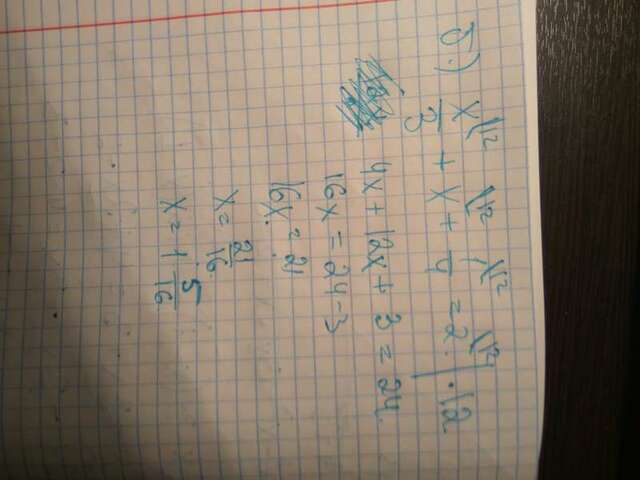 б.) x/3 + x + 1/4 = 2 | · 12
4x + 12x + 3 = 24
16x = 24 - 3
16x = 21
x = 21/16
x = 1 5/16